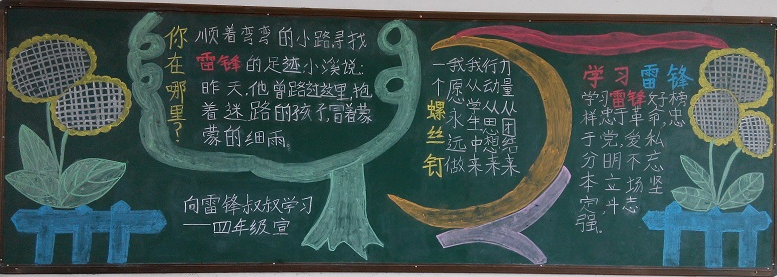 你在哪里?
顺着弯弯的小路,寻找
雷锋的足迹,小溪说:
昨天,他曾路过这里,抱
着迷路的孩子,冒着蒙
蒙的细雨。
向雷锋叔叔学习
——四年级宣
力量从团结来
行动从思想来
我从学生中来
我愿永远做
一个螺丝钉
学习雷锋
学习雷锋好榜
样,忠于革命,忠
于党,爱
分明不忘
本立场坚
定斗志
强。